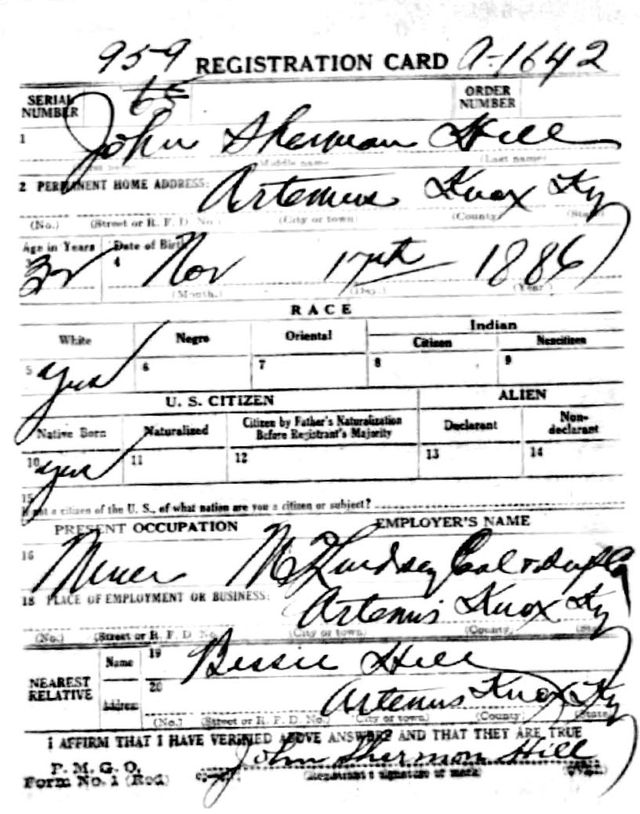 959 REGISTRATION CARD A-1642
SERIAL NUMBER ORDER NUMBER
1 John Sherman Hill
Middle name (Last name)
2 PERMANENT HOME ADDRESS: Artemus Knox Ky
(No.) (Street or R. F. D. No.) (City or town) (County) (State)
Age in Years Date of Birth
32 4 Nov 17th 1886
(Month.) (Day.) (Year)
RACE
White Negro Oriental Indian
Citizen Noncitizen
5 yes 6 7 8 9
U. S. CITIZEN ALIEN
Native Born Naturalized Citizen by Father's Naturalization Before Registrant's Majority Declarant Non-declarant
10 yes 11 12 13 14
15
If not a citizen of the U. S., of what nation are you a citizen or subject?
PRESENT OCCUPATION EMPLOYER'S NAME
16 Miner Coal
18 PLACE OF EMPLOYMENT OR BUSINESS: Artemus Knox Ky
(No.) (Street or R. F. D. No.) (City or town) (County) (State)
NEAREST RELATIVE
Name 19 Bessie Hill
Address 20 Artemus Knox Ky
(No.) (Street or R. F. D. No.) (City or town) (County) (State)
I AFFIRM THAT I HAVE VERIFIED ABOVE ANSWERS AND THAT THEY ARE TRUE
P. M. G. O.
Form No. 1 (Red) John Shermon Hill
(Registrant's signature or mark)